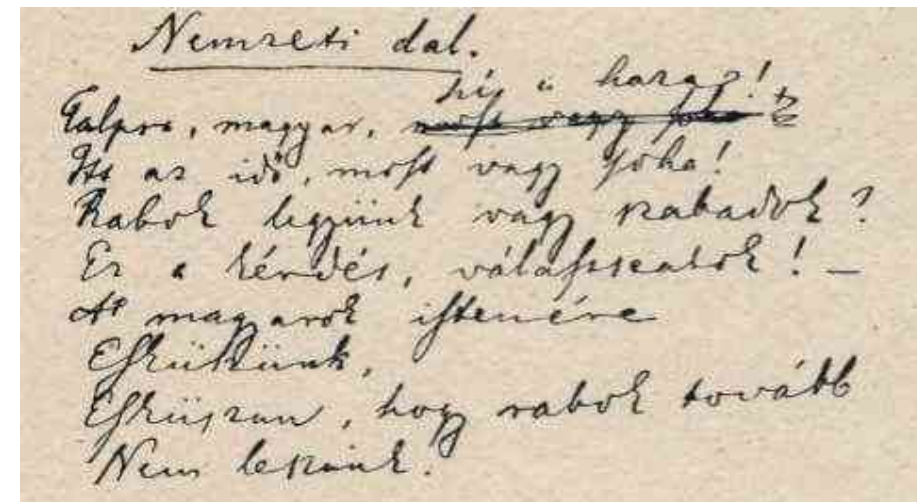 Nemzeti dal.
hí a haza!
Talpra, magyar, most vagy soha
Itt az idő, most vagy soha!
Rabok legyünk vagy szabadok?
Ez a kérdés, válasszatok! –
A' magyarok istenére
Esküszünk,
Esküszünk, hogy rabok tovább
Nem leszünk.